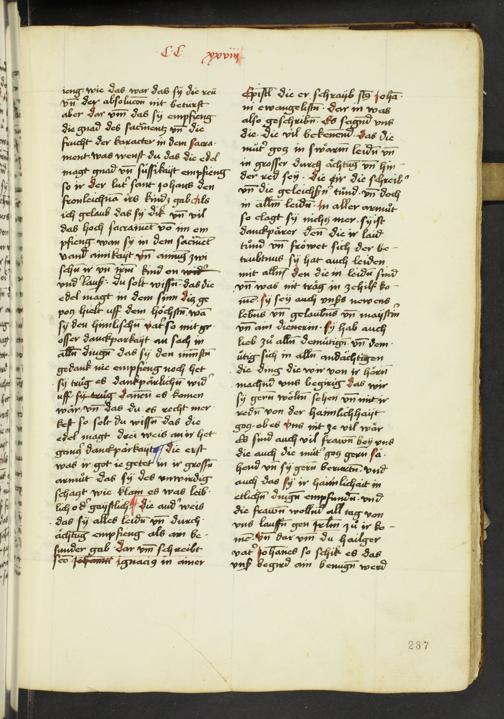 CC xxviij
ieng wie das war das sy die reü
vn̄ der absolucōn nit bedürft
aber dar vm̄ das sy empfieng
die gnad des sacments vn̄ die
frucht der karacter in dem sacra-
ment was wenst du das die edel
magt gnad vn̄ süssikayt empfieng
so ir der lut sant johans den
fronleichna irs kinds gab als
ich gelaub das sy dik vn̄ vil
das hoch sacramet vō im em
pfieng wan sy in dem sacmet
vand ainikayt vn̄
schu ir vn̄ irm kind on
vnd lauff. du solt wissen das die
edel magt in dem sinn
pon hielt vff dem höchsten wā
sy den himlischn vat' so mit gr-
osser danckparkayt an sach in
alln̄ dingn̄ das sy den minstn̄
gedank nie empfieng noch het
sy trüg es dankpärlichn̄ wid'
vff sy trüg danen es komen
wär vn̄ das du es recht mer-
kest so solt du wissn̄ das die
edel magt drei weis an ir het
gen danckpärkayt die erst
was ir got ie getet in ir grossn̄
armut das sy des vnwirdig
schagt wie klain es was leib-
lich od' gaystlich die and weis
das sy alles leidn̄ vn̄ durch
ächtung empfieng als ain be-
sunder gab. dar vm̄ schreibt
sco Johanni ignacius in ainer
Epistl die er schraib scō johā-
ni ewangelistn̄. dar in was
also geschribn̄. Es sagend vns
die die vil bekenend das die
müt' gog in swärm leidn̄ vn̄
in grosser durch ächtung vn̄ hin-
der red sey. die
vn̄ die geleichsn̄ tünd vn̄ doch
in allm leidn̄. in aller armut
so clagt sy nichz mer. sy ist
danckpärer den die ir laid
tünd vn̄ fröwet sich der be-
trubtnus sy hat auch leiden
mit alln̄ den die in leidn̄ sind
vn̄ was nit träg in ze hilf ko-
me. sy sey auch vnss newens
lebns vn̄ gelaubns vn̄ maystrin
vn̄ am dienerin. sy hab auch
lieb zu alln̄ demütign̄ vn̄ dem-
ütig sich in alln̄ andächtigen
die ding die wir von ir hörn̄
machnd vns begirig das wir
sy gern wöln sehen vn̄ mit ir
redn̄ von der haimlichhayt
gog. ob es vns nit ze vil wär
Es sind auch vil frawn̄ bey vns
die auch die müt' gog gern se-
hend vn̄ sy gern berürtn̄. vnd
auch das sy ir haimlichait in
etlichn̄ dingn̄ empfundn̄. vnd
die frawn̄ wolln̄ all tag von
vns lauffn̄ gen jrlm zū ir ko-
me. vn̄ dar vm̄ du hailger
vat' johanes so schik es das
vnss begird ain benugn̄ werd
237